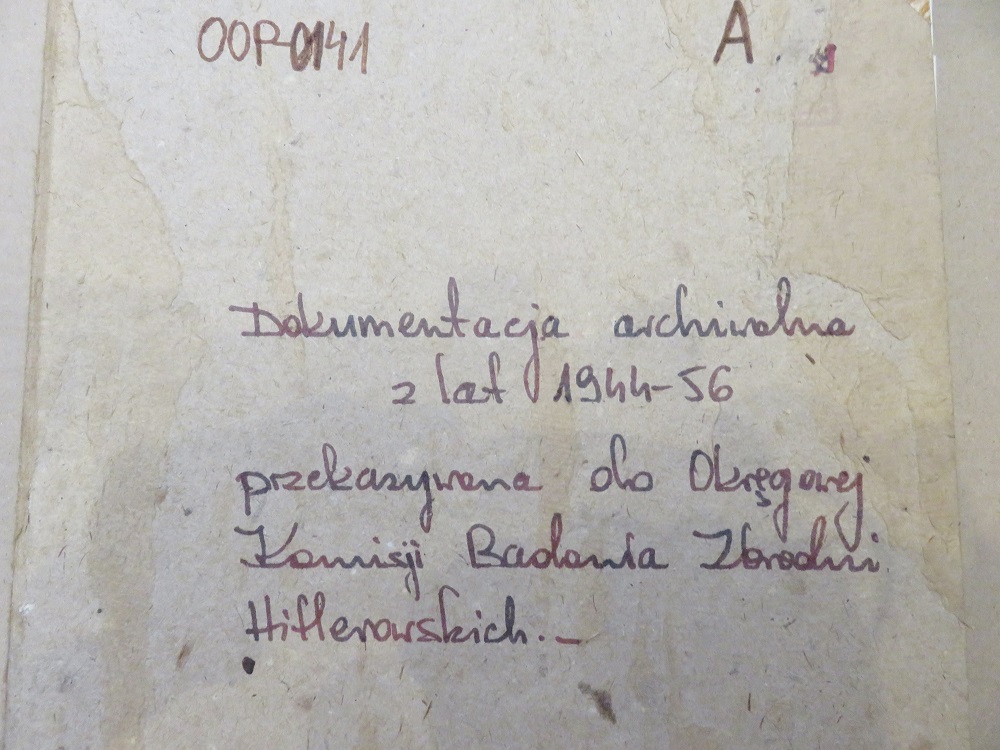 OOP-0141 A.
Dokumentacja archiwalna
z lat 1944-56
przekazywana do Okręgowej
Komisji Badania Zbrodni
Hitlerowskich. _